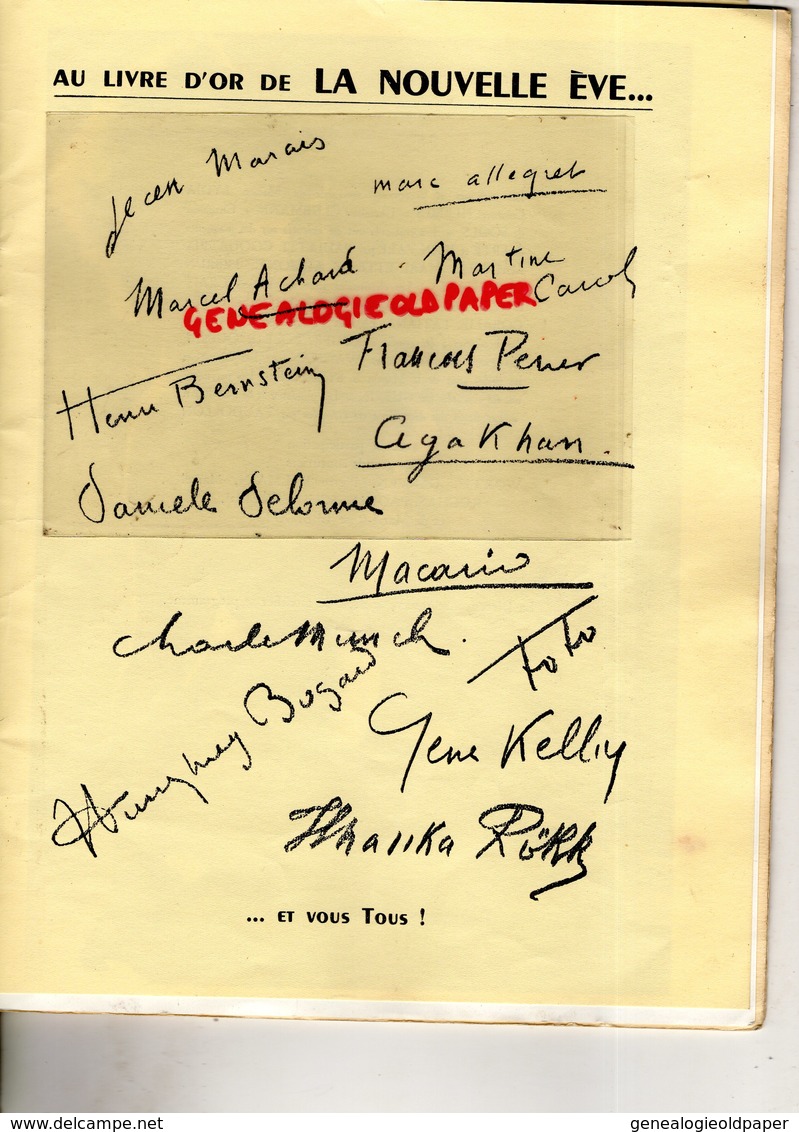 AU LIVRE D'OR DE LA NOUVELLE ÈVE...
Jean Marais
marc allegret
Marcel Achard
Martine Carol
GENEALOGIEOLDPAPER
Henri Bernstein
François Perier
Aga Khan.
Daniele Delorme
Macario
Charles Munch.
ToTo
Humphrey Bogard
Gene Kelly
Marika Rökk
... ET VOUS TOUS !
delcampe.net
genealogieoldpaper